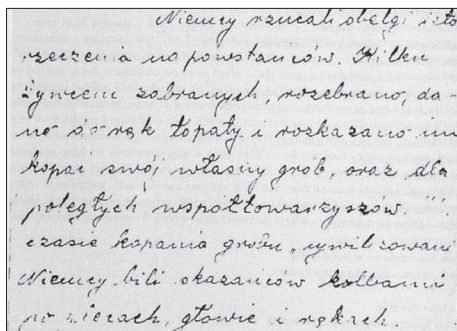 Niemcy rzucali obelgi i zło
rzeczenia na powstańców. Kilku
żywcem zabranych, rozebrano, da-
no do rąk łopaty i rozkazano im
kopać swój własny grób, oraz dla
poległych współtowarzyszów.
czasie kopania grobu, cywilizowani
Niemcy bili skazańców kolbami
po plecach, głowie i rękach.